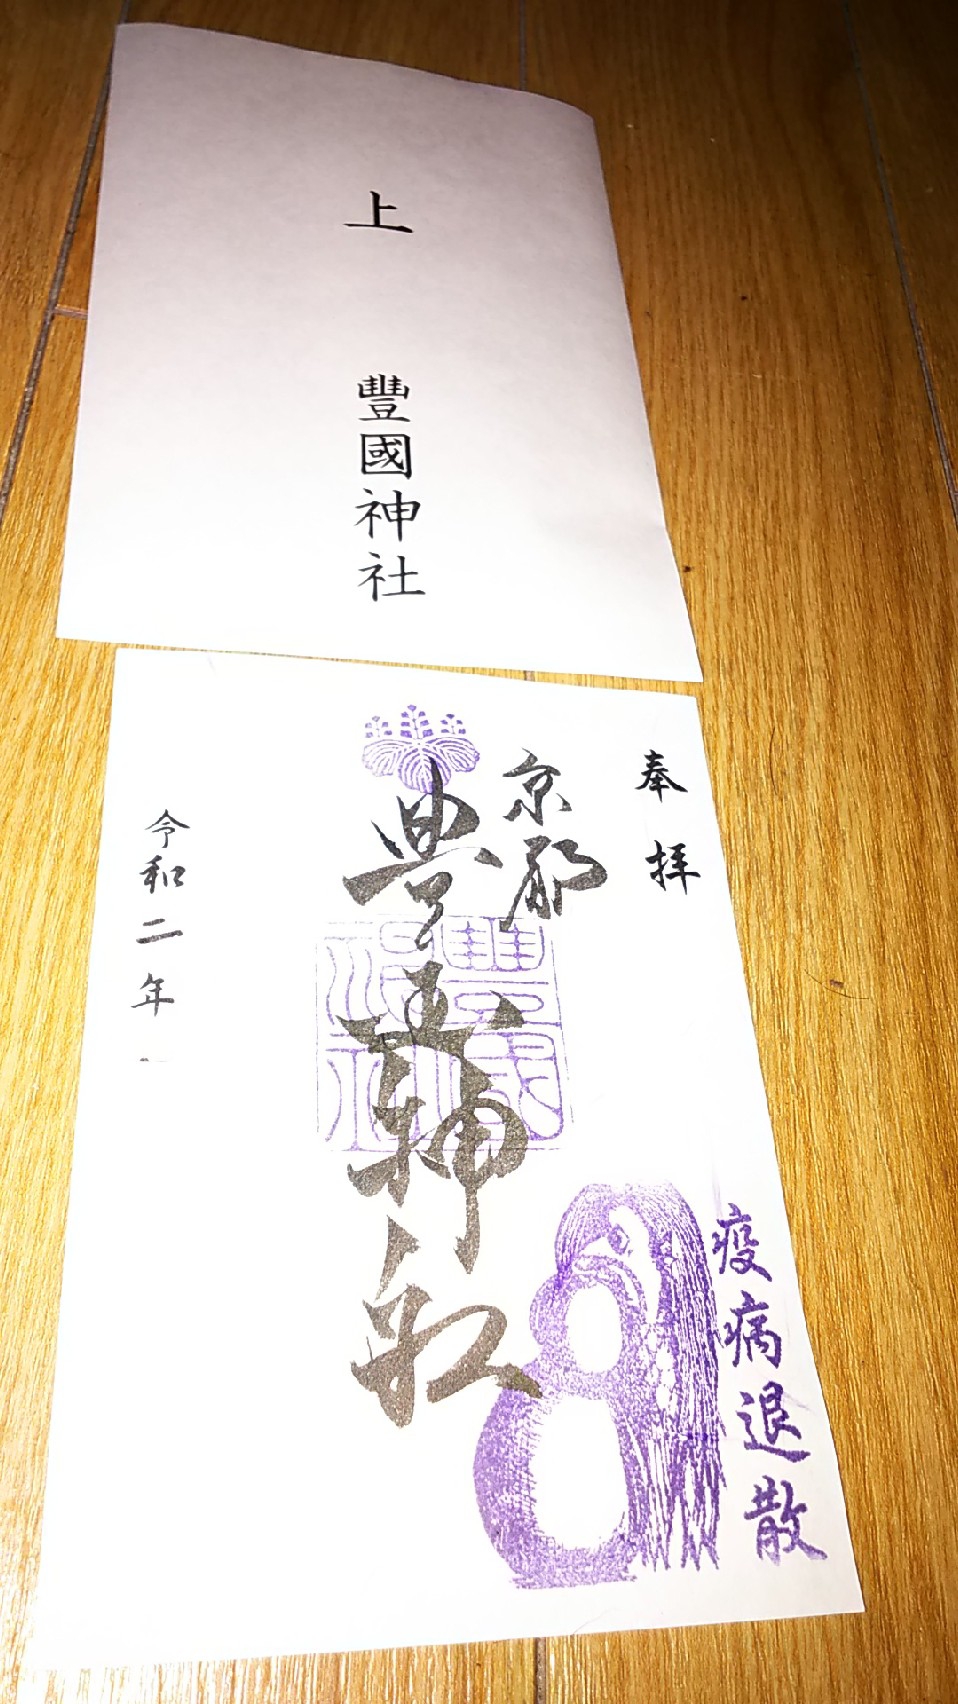 上
豐國神社
奉拝
京都
豊国神社
豐國神社
疫病退散
令和二年